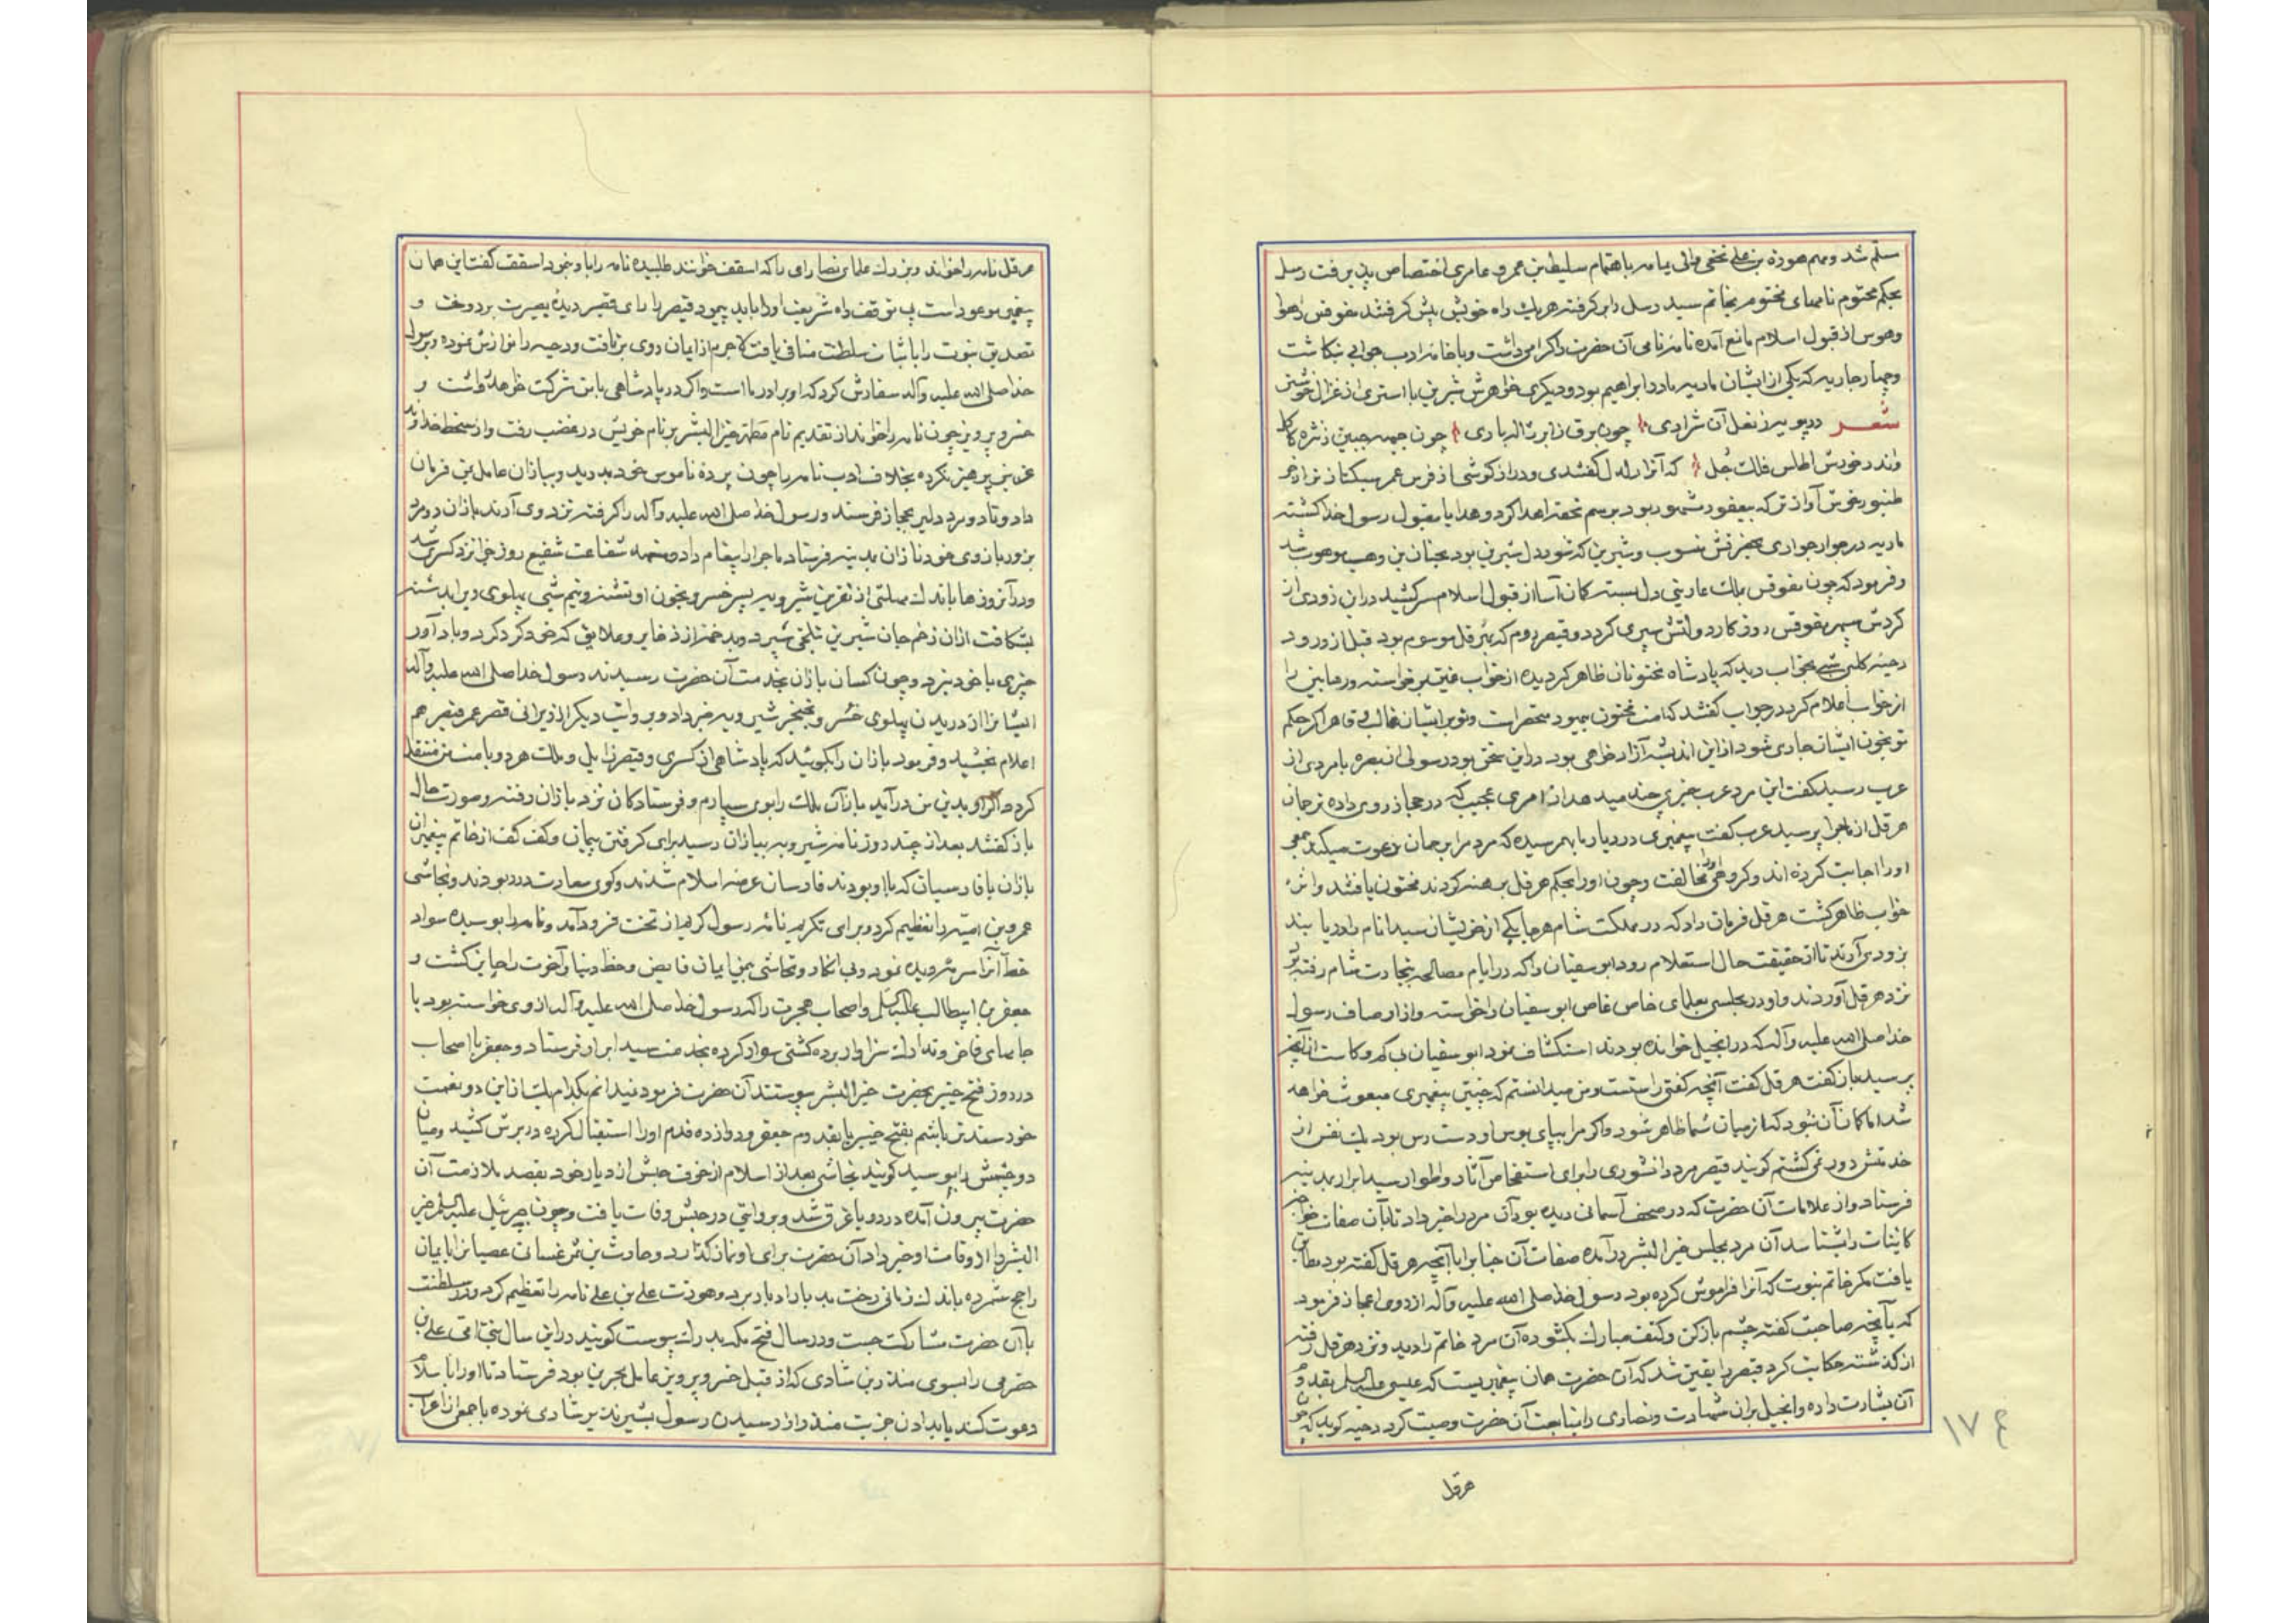 سلّم شد و مهم هوذه بن علی نخعی والی یمامه باهتمام سلیط بن عمرو عامری اختصاص پذیرفت رسل
بحکم محتوم نامهای مختوم بخاتم سید رسل را بر گرفته هر یک راه خویش پیش گرفتند مقوقس را هوا
و هوس از قبول اسلام مانع آمده نامهٔ نامی آن حضرت را گرامی داشت و با خامهٔ ادب جوابی نگاشت
و چهار جاریه که یکی از ایشان ماریه مادر ابراهیم بود و دیگری خواهرش شیرین با استری از غزال خوشتر
شعر در پویه ز نعل آن شراری چون برق ز ابر ژاله باری چون جبهه جبین ز نثره کاکل
واندر خورش اطلس فلک جُل که آنرا دلدل گفتندی و درازگوشی از فرس عمر سبکتاز تر از خر
طنبور خوش آوازتر که بیعفور مشهور بود برسم تحفه اهدا کرد و هدایا مقبول رسول خدا گشته
ماریه در جوار جواری بحضرتش منسوب و شیرین که شور دل شیرین بود بحنان بن وهب موهوب شد
و فرمود که چون مقوقس بملک عاریتی دل بسته کان آسا از قبول اسلام سر کشید در این زودی از
گردش سپهر مقوقس روزگار دولتش سپری گردد و قیصر روم که بهرقل موسوم بود قبل از ورود
دحیهٔ کلبی شبی بخواب دید که پادشاه مختونان ظاهر گردیده از خواب غمین برخواسته ورهابین را
از خواب اعلام کرد در جواب گفتند که امت مختون یهود محقرات و تو بر ایشان غالب و قاهر اگر حکم
تو بخون ایشان جاری شود از این اندیشه آزاد خواهی بود در این سخن بود رسولی از بصره با مردی از
عرب رسید گفت این مرد عرب خبری چند میدهد از امری عجیب که در حجاز روی داده ترجمان
هرقل از ماجرا پرسید عرب گفت پیغمبری در دیار ما بهم رسیده که مردم را بر جهان دعوت میکند جمعی
او را اجابت کرده اند و گروهی مخالفت و چون او را بحکم هرقل برهنه کردند مختون یافتند و اثر
خواب ظاهر گشت هرقل فرمان داد که در مملکت شام هر جا یکی از خویشان سید انام را دریابند
بزودی آرند تا از حقیقت حال استعلام رود ابوسفیان را که در ایام مصالحه بتجارت شام رفته بود
نزد هرقل آوردند و او در مجلسی بعلمای خاص غاص ابوسفیان را خواسته و از اوصاف رسول
خدا صلی الله علیه و آله که در انجیل خوانده بودند استکشاف نمود ابوسفیان بی کم و کاست از آنچه
پرسید باز گفت هرقل گفت آنچه گفتی راستست و من میدانستم که چنین پیغمبری مبعوث خواهد
شد اما گمان آن نبود که از میان شما ظاهر شود و اگر مرا بپای بوس او دست رس بود یک نفس از
خدمتش دور نمی گشتم گویند قیصر مرد دانشوری را برای استفحاص آثار و اطوار سید ابرار بمدینه
فرستاد و از علامات آن حضرت که در صحف آسمانی دیده بود آن مرد را خبر داد تا بآن صفات خواجهٔ
کاینات را بشناسد آن مرد بمجلس خیر البشر در آمده صفات آن جناب را با آنچه هرقل گفته بود مطابق
یافت مگر خاتم نبوت که آنرا فراموش کرده بود رسول خدا صلی الله علیه و آله از روی اعجاز فرمود
که بآنچه صاحبت گفته چشم باز کن و کتف مبارک بگشوده آن مرد خاتم را دید و نزد هرقل رفته
از گذشته حکایت کرد قیصر را یقین شد که آن حضرت همان پیغمبریست که عیسی علیه السلم بقدوم
آن بشارت داده و انجیل بر ان شهادت و نصاری را بمتابعت آن حضرت وصیت کرد دحیه گوید که چون
هرقل
۱۷۴
هرقل نامه را خواند و بزرک علمای نصارای را که اسقف خوانند طلبیده نامه را با و نمود اسقف گفت این همان
پیغمبر موعود است بی توقف راه شریعت او را باید پیمود قیصر را رای قصیر دیدهٔ بصیرت بر دوخت و
تصدیق نبوت را با ثبات سلطنت منافی یافت لاجرم از ایمان روی برتافت و دحیه را نوازش نموده و برسول
خدا صلی الله علیه و آله سفارش کرد که او برادر ما است و اگر در پادشاهی با من شرکت خواهد و
خسرو پرویز چون نامه را خواند از تقدیم نام مطهر خیر البشر بر نام خویش در غضب رفت و از سخط خداوند
غرمین پرهیز نکرده بخلاف ادب نامه را چون پردهٔ ناموس خود بدرید و ببازان عامل یمن فرمان
داد و تا دو مرد دلیر بحجاز فرستد و رسول خدا صلی الله علیه و آله را گرفته نزد وی آرند باذان دو مرد
بزور بازوی خود نازان بمدینه فرستاد ماجرا را پیغام داد شفاعت شفیع روز جزا نزد کسری شد
و در آنروزها باندک مهلتی از نفرین شیرویه پسر خسرو بخون او تشنه و نیم شبی پهلوی ویرا بدشنه
بشکافت از ان زخم جان شیرین بتلخی سپرد و بدخمه از ذخایر و علایق که خود گرد کرد و باد آور
چیزی با خود نبرد و چون کسان باذان بخدمت آن حضرت رسیدند رسول خدا صلی الله علیه و آله
ایشانرا از دریدن پهلوی خسرو بخنجر شیرویه خبر داد و بروایت دیگر از ویرانی قصر عمر قیصر هم
اعلام بخشید و فرمود باذان را بگوئید که پادشاهی از کسری و قیصر زایل و ملک هر دو با من منتقل
گردد اگر او بدین من در آید باز آن ملک را بوی سپارم و فرستادگان نزد باذان رفته و صورت حال
باز گفتند بعد از چند روز نامهٔ شیرویه ببازان رسید برای گرفتن پیمان و کف کف از خاتم پیغمبران
باذن با فارسیان که با او بودند فارسان عرصهٔ اسلام شدند و گوی سعادت در ربودند و نجاشی
عمرو بن امیّه را تعظیم کرد و برای تکریم نامهٔ رسول کریم از تخت فرود آمد و نامه را بوسیده سواد
خط آنرا سرمهٔ دیده نمود و بی انکار و تحاشی بمن ایمان فایض و حظ دنیا و آخرت را حایز گشت و
جعفر بن ابیطالب علیه السلم و اصحاب هجرت را که رسول خدا صلی الله علیه و آله از وی خواسته بود با
جامهای فاخر و تدارک سزاوار برده کشتی سوار کرده بخدمت سید ابرار فرستاد و جعفر با اصحاب
در روز فتح خیبر بحضرت خیر البشر پیوستند آن حضرت فرمود نمیدانم بکدام یک از این دو نعمت
خود سعدتر باشم بفتح خیبر یا بقدوم جعفر و دوازده قدم او را استقبال کرده در برش کشید و میان
دو چشمش را بوسید گویند نجاشی بعد از اسلام از خوف حبش از دیار خود بقصد ملازمت آن
حضرت بیرون آمده در دریا غرق شد و بروایتی در حبش وفات یافت و چون جبرئیل علیه السلم خیر
البشر را از وفات او خبر داد آن حضرت برای او نماز گذارد و حارث بن شمر غسانی عصیانرا بایمان
راجح شمرده باندک زمانی رخت بد باداد باد برد و هوذت علی بن علی نامه را تعظیم کرد و در سلطنت
با آن حضرت مشارکت جست و در سال فتح مکه بدرک پیوست گویند در این سال بنی علی بن
حضرمی را بسوی منذر بن شادی که از قبل خسرو پرویز عامل بحرین بود فرستاد تا او را باسلام
دعوت کند یا بدادن جزیت منذر از رسیدن رسول بشیر نذیر شادی نموده با جمعی از اعراب